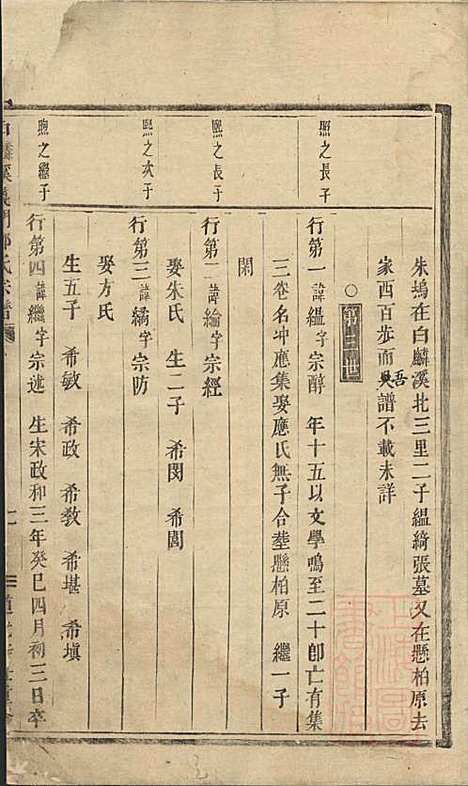 朱塢在白麟溪北三里二子縕綺張墓又在懸柏原去
家西百步而吳吾譜不載未詳
○第三世
煕之長子
行第一諱縕字宗醇 年十五以文學鳴至二十卽亡有集
三卷名冲應集娶應氏無子合塟懸柏原 繼一子
閑
煕之長子
行第一諱綸字宗經
娶朱氏 生二子 希閔 希閭
煕之次子
行第三諱繘字宗防
娶方氏
煦之繼子
生五子 希敏 希政 希教 希堪 希塡
行第四諱繼字宗述 生宋政和三年癸巳四月初三日卒
白麟溪義門鄭氏宗譜